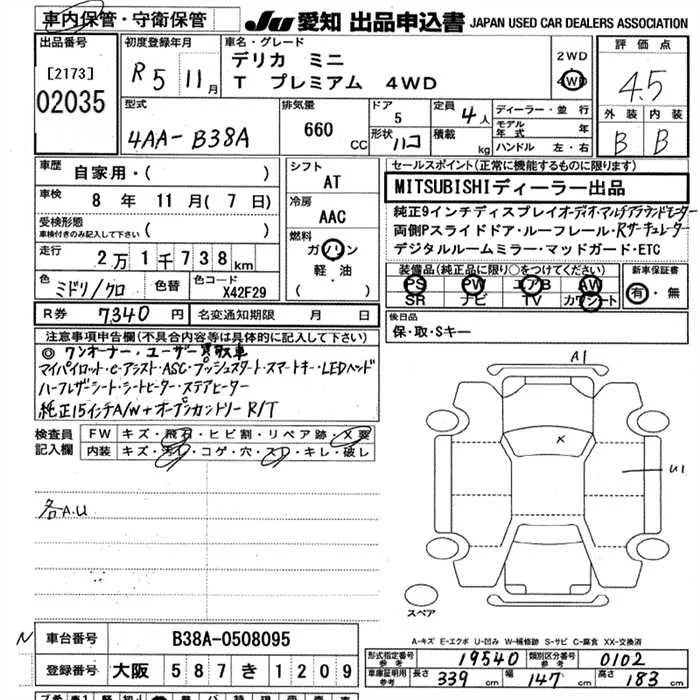 車内保管・守衛保管
JU 愛知 出品申込書 JAPAN USED CAR DEALERS ASSOCIATION
出品番号
[2173]
02035
初度登録年月
R5 11月
車名・グレード
デリカ ミニ
T プレミアム 4WD
2WD
4WD
評価点
4.5
外装 内装
B B
型式
4AA-B38A
排気量
660 CC
ドア
5
形状 ハコ
定員 4人
積載 kg
ディーラー・並行
モデル年式 年
ハンドル 左・右
車歴
自家用・( )
車検
8年 11月(7日)
受検形態
車検付きのみ記入して下さい ( )
走行
2万1千738km
色 ミドリ/クロ
色替
色コード X42F29
シフト
AT
冷房
AAC
燃料
ガソリン
軽・油
( )
セールスポイント(正常に機能するものに限ります)
MITSUBISHIディーラー出品
純正9インチディスプレイオーディオ・マルチアラウンドモニター
両側Pスライドドア・ルーフレール・Rサーキュレーター
デジタルルームミラー・マッドガード・ETC
装備品(純正品に限り○をつけてください)
PS PW エアB AW
SR ナビ TV カワシート
新車保証書
有・無
R券 7340円
名変通知期限 月 日
後日品
保・取・Sキー
注意事項申告欄(不具合内容等は具体的に記入して下さい)
◎ワンオーナー・ユーザー買取車
マイパイロット・e-アシスト・ASC・プッシュスタート・スマートキー・LEDヘッド
ハーフレザーシート・シートヒーター・ステアヒーター
純正15インチA/W+オープンカントリーR/T
検査員記入欄
FW キズ・飛石・ヒビ割・リペア跡・X要
内装 キズ・汚れ・コゲ・穴・スレ・キレ・破レ
各A.U
A1
X
U1
スペア
A-キズ E-エクボ U-凹み W-補修跡 S-サビ C-腐食 XX-交換済
N 車台番号 B38A-0508095
登録番号 大阪 587 き 1209
形式指定番号 参考 19540
類別区分番号 参考 0102
車庫証明用 参考 長さ 339cm 幅 147cm 高さ 183cm